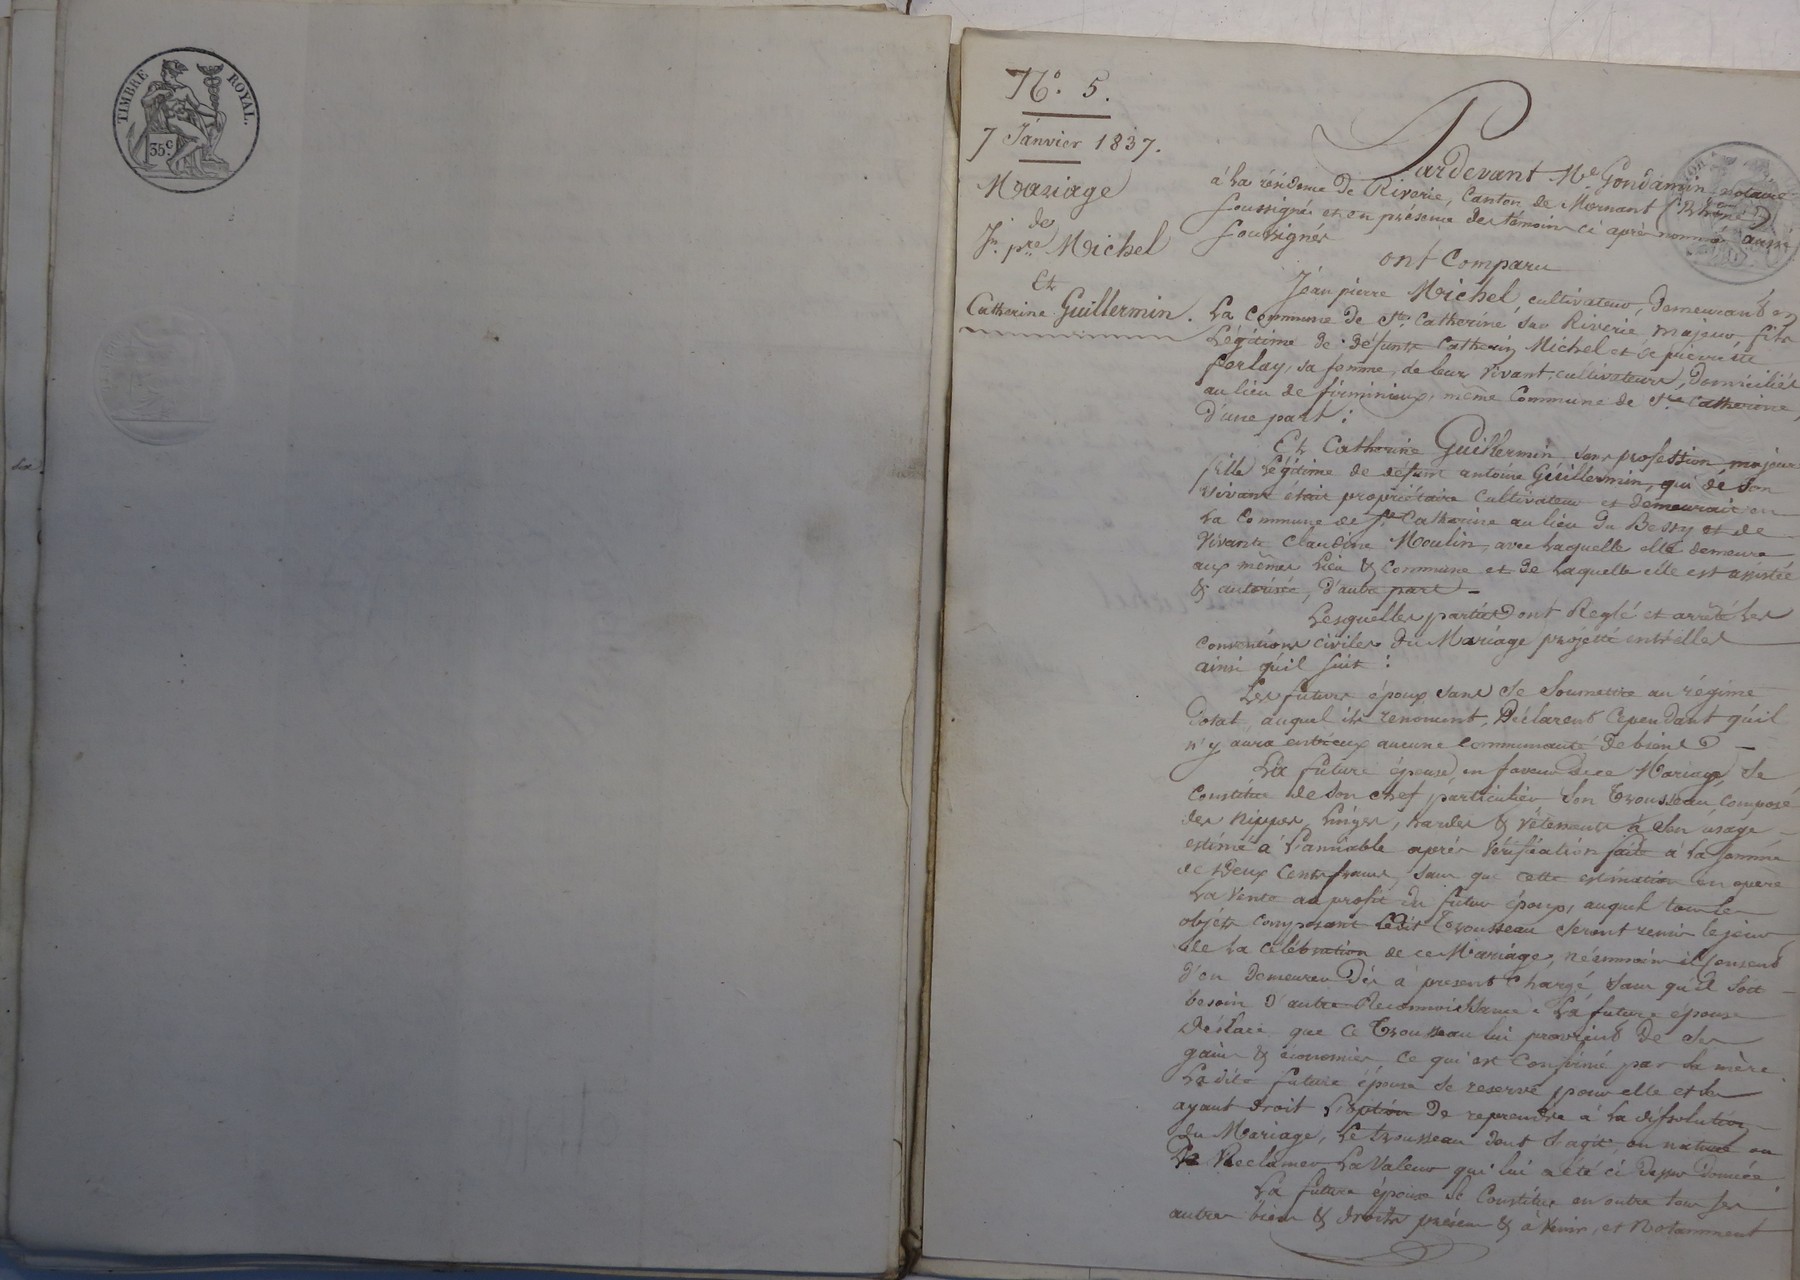 TIMBRE ROYAL.
35c
N.º 5.
7 Janvier 1837.
Mariage
de
Jn. pre Michel
Et
Catherine Guillermin.
Pardevant Me Gondamin notaire
à la résidence de Riverie, Canton de Mornant (Rhône)
soussigné et en présence des témoins ci après nommés aussi
soussignés
ont Comparu
Jean pierre Michel cultivateur, demeurant en
la Commune de Ste Catherine sur Riverie majeur, fils
légitime de défunts Catherin Michel et de pierrette
forlay, sa femme, de leur vivant cultivateurs, domiciliés
au lieu de firminieux, même Commune de Ste Catherine,
d'une part :
Et Catherine Guillermin sans profession, majeure
fille légitime de défunt antoine Guillermin, qui de son
vivant était propriétaire cultivateur et demeurait en
la Commune de Ste Catherine au lieu du Bessy et de
vivante Claudine Moulin, avec laquelle elle demeure
aux mêmes lieu & Commune et de laquelle elle est assistée
& autorisée, d'autre part –
Lesquelles parties ont Reglé et arrêté les
conventions civiles du Mariage projetté entr'elles
ainsi qu'il suit :
Les futurs époux sans se soumettre au régime
dotal, auquel ils renoncent, Déclarent Cependant qu'il
n'y aura entr'eux aucune Communauté de biens –
La future épouse, en faveur de ce Mariage, se
Constitue de son chef particulier son Trousseau, composé
des nippes, linges, hardes & vêtements à son usage
estimé à l'amiable après vérification faite à la somme
de Deux Cents francs, sans que cette estimation en opère
la Vente au profit du futur époux, auquel tous les
objets composant ledit Trousseau seront remis le jour
de la célébration de ce Mariage, néanmoins il consent
d'en demeurer Dès à présent Chargé sans qu'il soit
besoin d'autre Reconnoissance. La future épouse
déclare que ce Trousseau lui provient de ses
gains & économies ce qui est confirmé par sa mère.
Ladite future épouse se reserve pour elle et les
ayant droit l'option de reprendre à la dissolution
du Mariage, le trousseau dont s'agit, en nature ou
de Réclamer la Valeur qui lui a été ci dessus donnée.
La future épouse se Constitue en outre tous ses
autres biens & droits présens & à venir, et Notamment